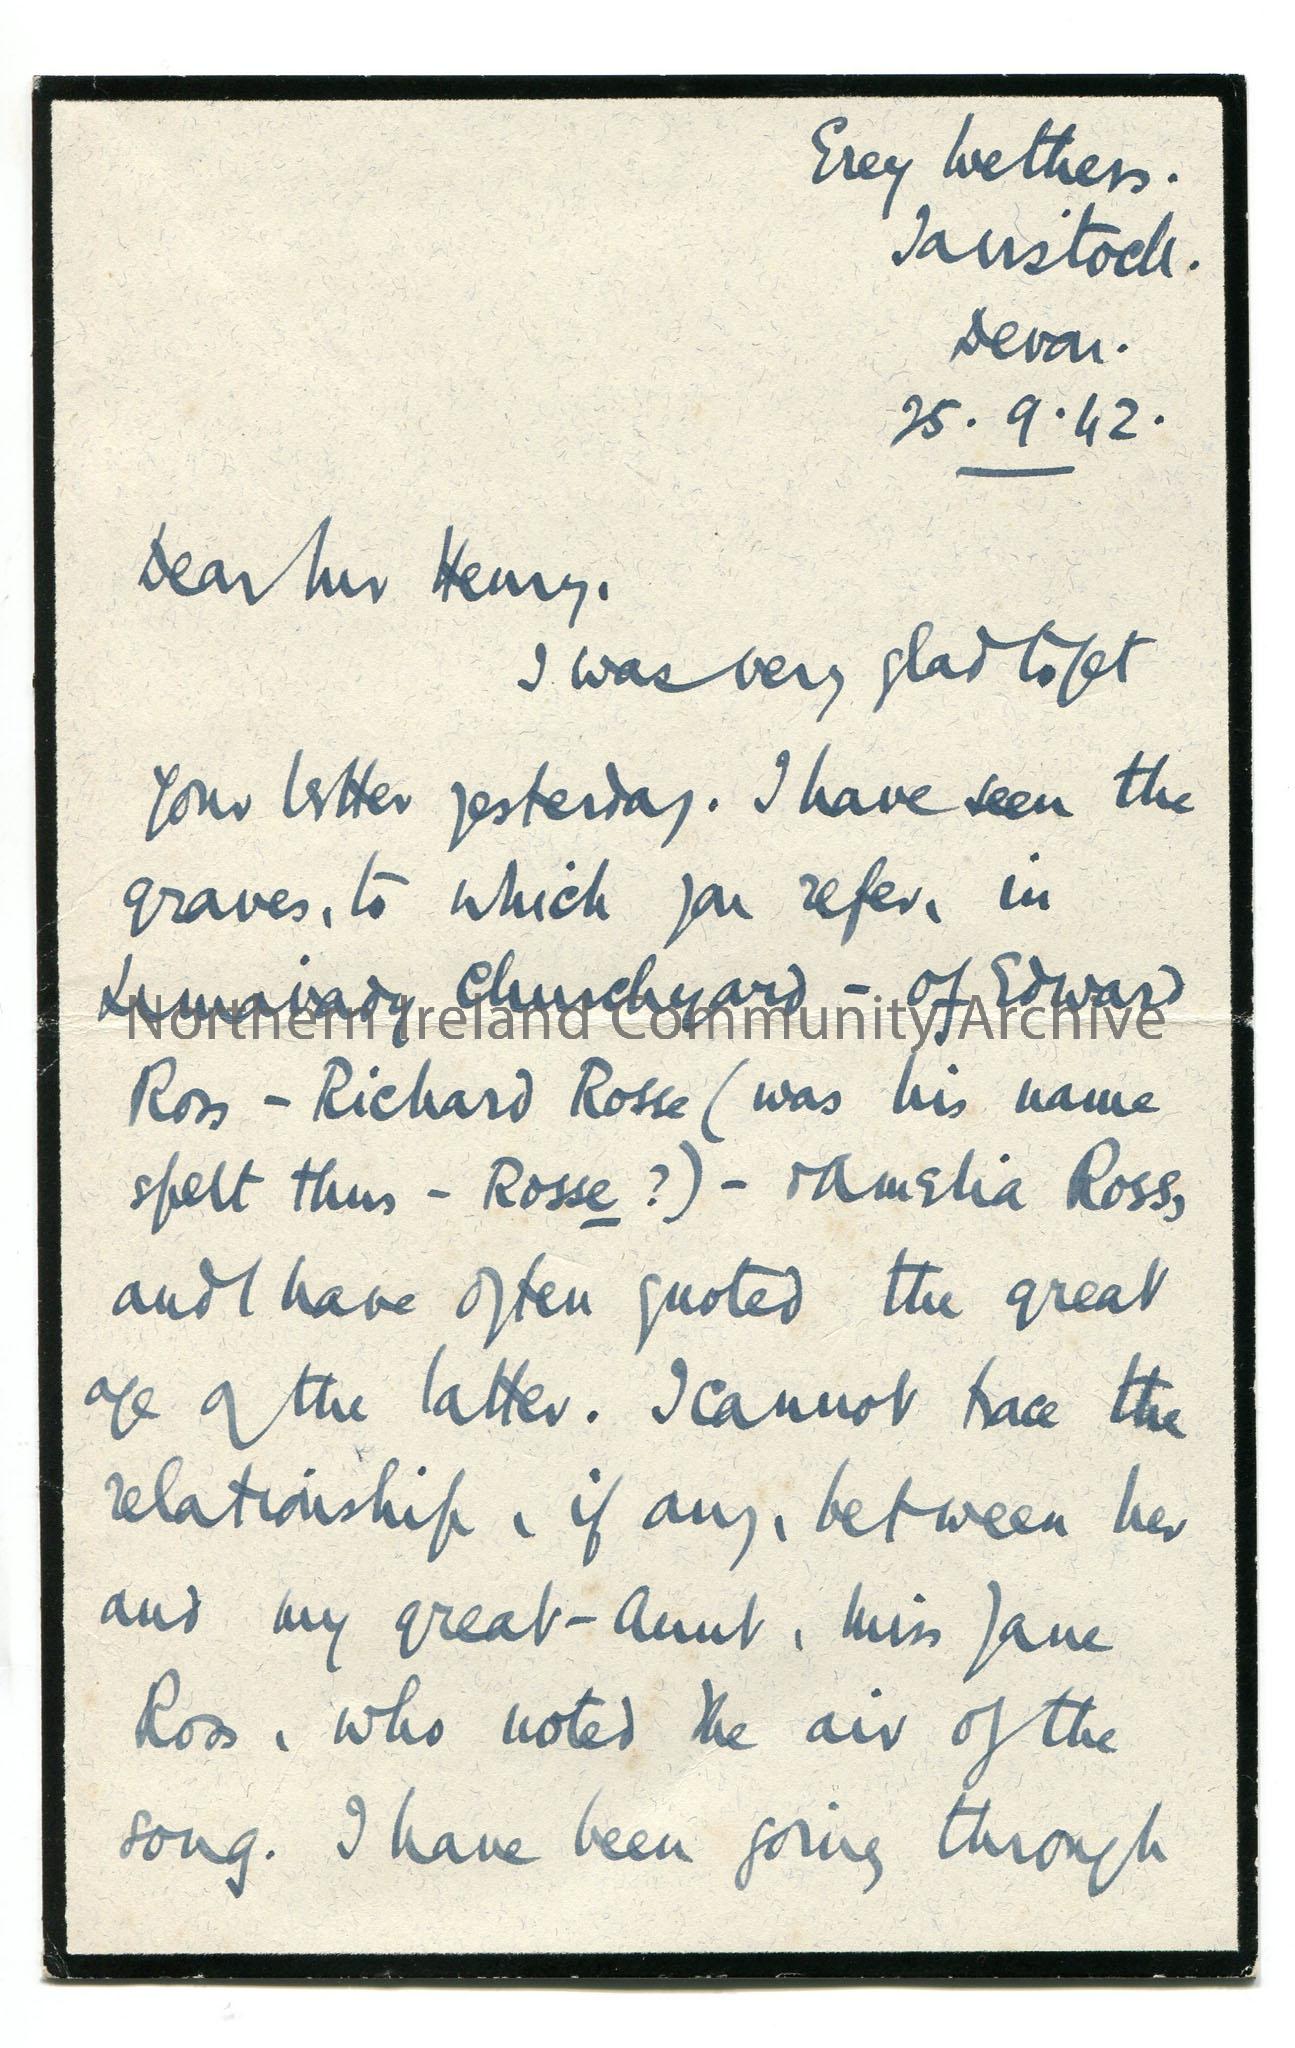 Grey Wethers.
Tavistock.
Devon.
25.9.42.
Dear Mr Henry,
I was very glad to get
your letter yesterday. I have seen the
graves, to which you refer, in
Limavady Churchyard - of Edward
Northern Ireland Community Archive
Ross - Richard Rosse (was his name
spelt thus - Rosse?) - & Amelia Ross,
and I have often quoted the great
age of the latter. I cannot trace the
relationship, if any, between her
and my great-Aunt, Miss Jane
Ross, who noted the air of the
song. I have been going through